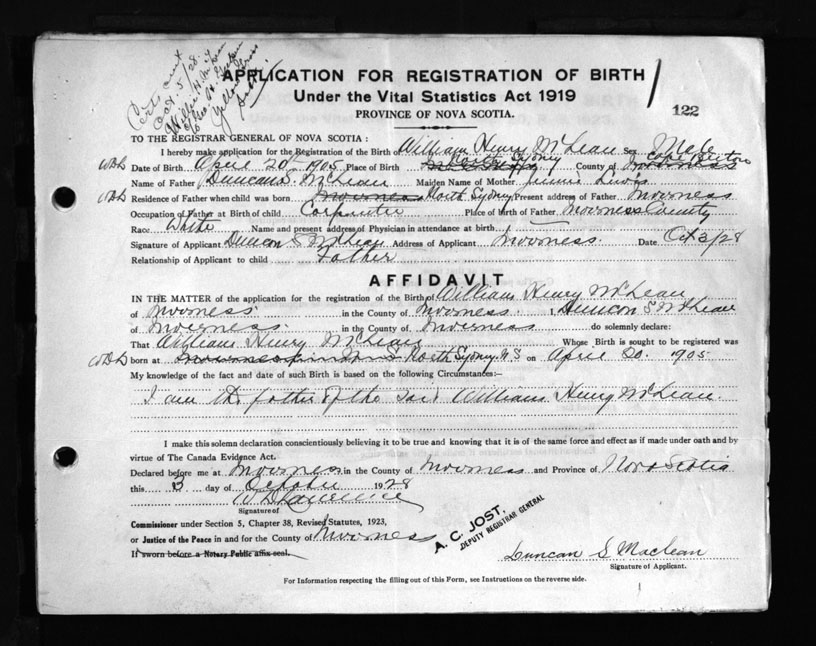 Oct. 5/28.
APPLICATION FOR REGISTRATION OF BIRTH
Under the Vital Statistics Act 1919
PROVINCE OF NOVA SCOTIA.
122
TO THE REGISTRAR GENERAL OF NOVA SCOTIA:
I hereby make application for the Registration of the Birth of William Henry McLean Sex Male
Date of Birth April 20th 1905 Place of Birth North Sydney County of Cape Breton
Name of Father Duncan S. McLean Maiden Name of Mother Jennie Lewis
Residence of Father when child was born Inverness North Sydney Present address of Father Inverness
Occupation of Father at Birth of child Carpenter Place of birth of Father Inverness County
Race White Name and present address of Physician in attendance at birth
Signature of Applicant Duncan S McLean Address of Applicant Inverness. Date Oct 3/28
Relationship of Applicant to child Father
AFFIDAVIT
IN THE MATTER of the application for the registration of the Birth of William Henry McLean
of Inverness in the County of Inverness I, Duncan S McLean
of Inverness in the County of Inverness do solemnly declare:
That William Henry McLean Whose Birth is sought to be registered was
born at North Sydney N.S on April 20. 1905
My knowledge of the fact and date of such Birth is based on the following Circumstances:—
I am the father of the said William Henry McLean.
I make this solemn declaration conscientiously believing it to be true and knowing that it is of the same force and effect as if made under oath and by
virtue of The Canada Evidence Act.
Declared before me at Inverness, in the County of Inverness and Province of Nova Scotia
this 3 day of October 1928
W D Lawrence
Signature of
Commissioner under Section 5, Chapter 38, Revised Statutes, 1923,
or Justice of the Peace in and for the County of Inverness
If sworn before a Notary Public affix seal.
A. C. JOST.
DEPUTY REGISTRAR GENERAL
Duncan S Maclean
Signature of Applicant.
For Information respecting the filling out of this Form, see Instructions on the reverse side.